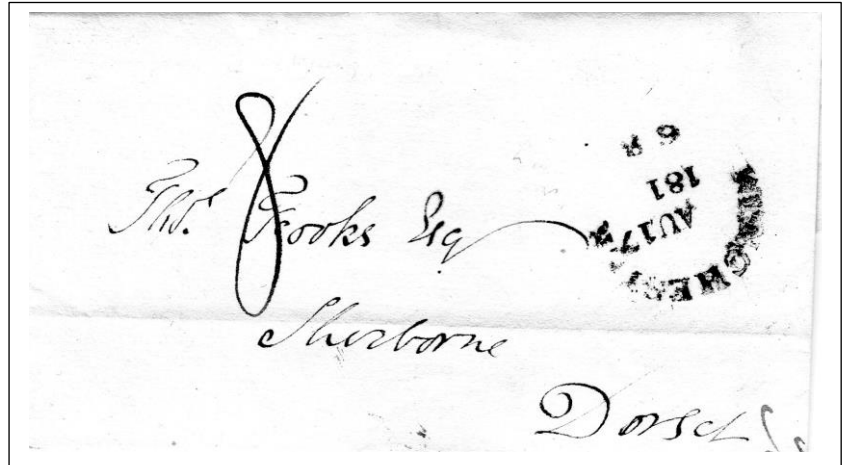 8
Thos. Fooks Esq
Sherborne
Dorset
WINCHESTER
AU17
181